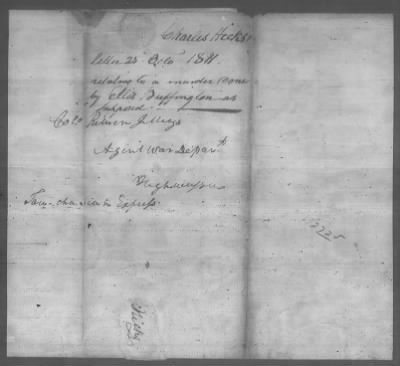 Charles Hicks
letter 25 Octo 1811
relating to a murder done
by Ellis Buffington as
supposed
Colo Return J. Meigs
Agent War Depart
Highwassee
Express
Hicks